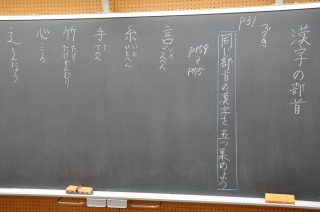 漢字の部首
つづき
p31
同じ部首の漢字を五つ集めよう
p159
p175
言 ごんべん
糸 いと いとへん
手 て てへん
竹 たけ たけかんむり
心 こころ
えんにょう